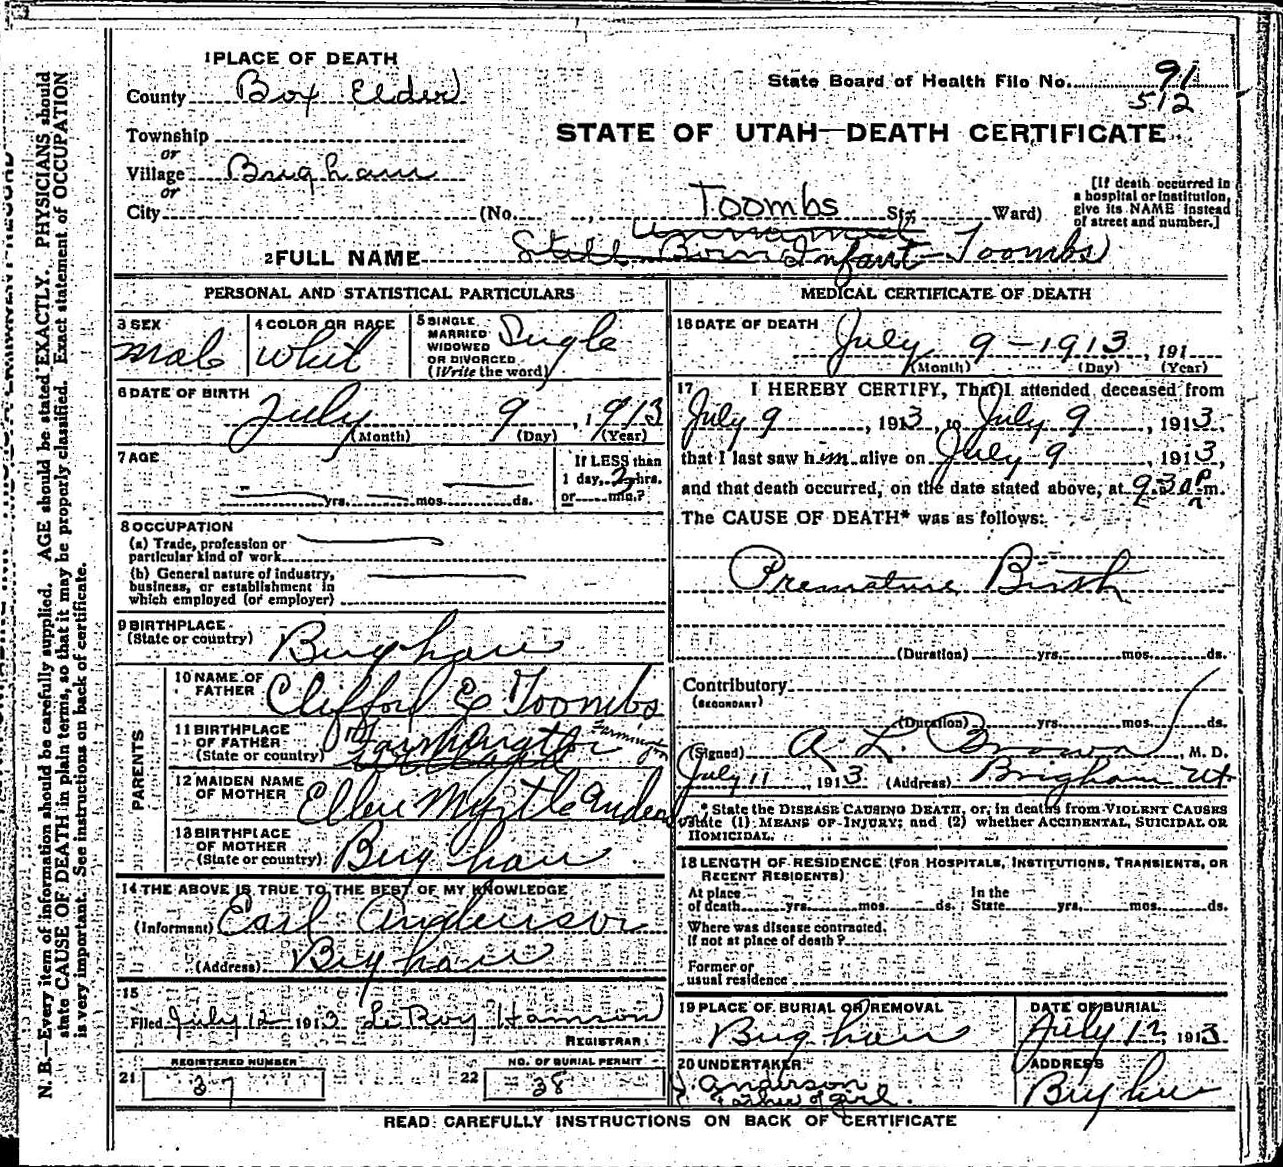 1 PLACE OF DEATH
County Box Elder
State Board of Health File No. 91
512
Township
or
Village Brigham
or
City (No. , St; Ward)
STATE OF UTAH—DEATH CERTIFICATE
[If death occurred in a hospital or institution, give its NAME instead of street and number.]
Toombs
unnamed
2 FULL NAME Still Born Infant Toombs
PERSONAL AND STATISTICAL PARTICULARS
3 SEX
Male
4 COLOR OR RACE
Whit
5 SINGLE
MARRIED
WIDOWED
OR DIVORCED
(Write the word)
Single
6 DATE OF BIRTH
July 9, 1913
(Month) (Day) (Year)
7 AGE
yrs. mos. ds.
If LESS than
1 day, 2 hrs.
or min.?
8 OCCUPATION
(a) Trade, profession or
particular kind of work
(b) General nature of industry,
business, or establishment in
which employed (or employer)
9 BIRTHPLACE
(State or country) Brigham
PARENTS
10 NAME OF
FATHER Clifford E Toombs
11 BIRTHPLACE
OF FATHER
(State or country) Farmington
12 MAIDEN NAME
OF MOTHER Ellen Myrtle Anderson
13 BIRTHPLACE
OF MOTHER
(State or country) Brigham
14 THE ABOVE IS TRUE TO THE BEST OF MY KNOWLEDGE
(Informant) Earl Anderson
(Address) Brigham
15
Filed July 12 1913 LeRoy Hamson
REGISTRAR
REGISTERED NUMBER
21 37
NO. OF BURIAL PERMIT
22 38
MEDICAL CERTIFICATE OF DEATH
16 DATE OF DEATH
July 9 - 1913, 191
(Month) (Day) (Year)
17 I HEREBY CERTIFY, That I attended deceased from
July 9, 1913, to July 9, 1913,
that I last saw him alive on July 9, 1913,
and that death occurred, on the date stated above, at 9 30 P m.
The CAUSE OF DEATH* was as follows:
Premature Birth
(Duration) yrs. mos. ds.
Contributory
(SECONDARY)
(Duration) yrs. mos. ds.
(Signed) A. L. Brown, M. D.
July 11, 1913 (Address) Brigham Ut
* State the DISEASE CAUSING DEATH, or, in deaths from VIOLENT CAUSES
state (1) MEANS OF INJURY; and (2) whether ACCIDENTAL, SUICIDAL OR
HOMICIDAL.
18 LENGTH OF RESIDENCE (FOR HOSPITALS, INSTITUTIONS, TRANSIENTS, OR
RECENT RESIDENTS)
At place
of death yrs. mos. ds.
In the
State yrs. mos. ds.
Where was disease contracted,
if not at place of death?
Former or
usual residence
19 PLACE OF BURIAL OR REMOVAL
Brigham
DATE OF BURIAL
July 12, 1913
20 UNDERTAKER
Anderson
Father of girl.
ADDRESS
Brigham
READ CAREFULLY INSTRUCTIONS ON BACK OF CERTIFICATE
N. B.—Every item of information should be carefully supplied. AGE should be stated EXACTLY. PHYSICIANS should
state CAUSE OF DEATH in plain terms, so that it may be properly classified. Exact statement of OCCUPATION
is very important. See instructions on back of certificate.